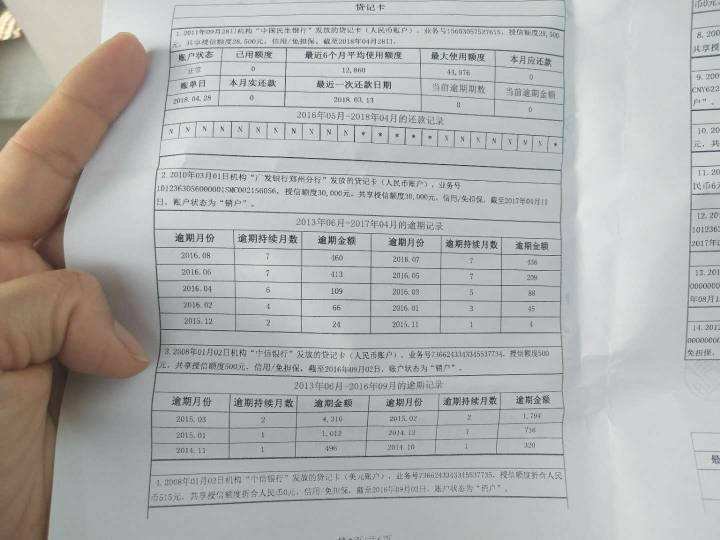 贷记卡
1.2011年09月28日机构“中国民生银行”发放的贷记卡（人民币账户），授信额度28,500
元，共享授信额度28,500元，信用/免担保，截至2018年04月28日，
账户状态 已用额度 最近6个月平均使用额度 最大使用额度 本月应还款
正常 0 12,860 0
账单日 本月实还款 最近一次还款日期 当前逾期期数 当前逾期金额
2018.04.28 0 2018.03.13 0 0
2016年05月-2018年04月的还款记录
N N N N N N N N N N N * * * * * N N N N N N N *
2.2010年03月01日机构“广发银行郑州分行”发放的贷记卡（人民币账户），业务号
授信额度30,000元，共享授信额度30,000元，信用/免担保，截至2017年04月11
日，账户状态为“销户”。
2013年06月-2017年04月的逾期记录
逾期月份 逾期持续月数 逾期金额 逾期月份 逾期持续月数 逾期金额
2016.08 7 460 2016.07 7
2016.06 7 413 2016.05 7 209
2016.04 6 109 2016.03 5 88
2016.02 4 66 2016.01 3 45
2015.12 2 24 2015.11 1 4
3.2008年01月02日机构“中信银行”发放的贷记卡（人民币账户），业务号7366243343345537734，授信额度500
元，共享授信额度500元，信用/免担保，截至2016年09月02日，账户状态为“销户”。
2013年06月-2016年09月的逾期记录
逾期月份 逾期持续月数 逾期金额 逾期月份 逾期持续月数 逾期金额
2015.03 2 2015.02 2 1,794
2015.01 1 1,012 2014.12 1 736
2014.11 1 496 2014.10 1 320
4.2008年01月02日机构“中信银行”发放的贷记卡（美元账户），业务号7366243343345537735，授信额度折合人民
币515元，共享授信额度折合人民币0元，信用/免担保，截至2016年09月02日，账户状态为“销户”。
8.200
共享授
9.200
户”。
10.20
元，共
11.20
民币6
12.20
2017年0
13.201
年08月1
14.201
免担保，